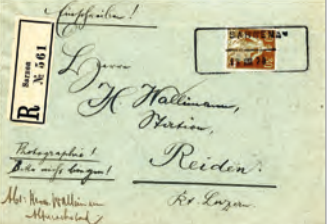 Einschreiben!
SARNEN
R Sarnen
№ 561
Herrn
H. Wallimann,
Station,
Reiden.
Kt. Luzern.
Photographie!
Bitte nicht biegen!
Abs: Herm. Wallimann
Alpnachstad